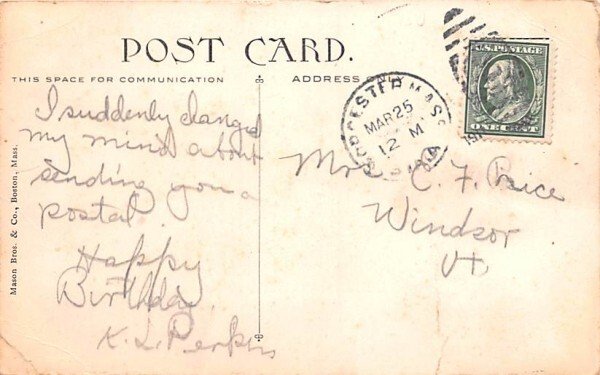 POST CARD.
THIS SPACE FOR COMMUNICATION
ADDRESS ONLY
I suddenly changed
my mind about
sending you a
postal.
Happy
Birthday.
K. L. Perkins
Mason Bros. & Co., Boston, Mass.
WORCESTER, MASS
MAR 25
12 M
U.S. POSTAGE
ONE CENT
Mrs C. F. Price
Windsor
Vt